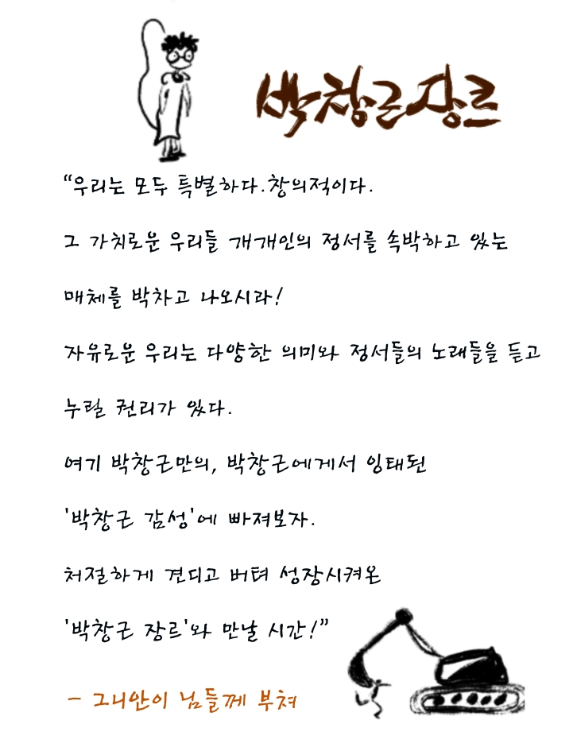 박창근장르
“우리는 모두 특별하다.창의적이다.
그 가치로운 우리들 개개인의 정서를 속박하고 있는
매체를 박차고 나오시라!
자유로운 우리는 다양한 의미와 정서들의 노래들을 듣고
누릴 권리가 있다.
여기 박창근만의, 박창근에게서 잉태된
'박창근 감성'에 빠져보자.
처절하게 견디고 버텨 성장시켜온
'박창근 장르'와 만날 시간!”
- 그니안이 님들께 부쳐